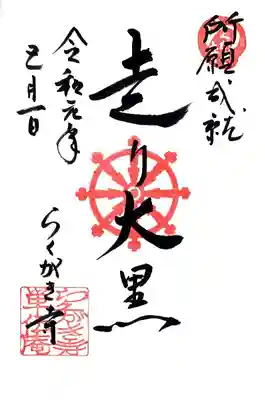 所願成就
走り大黒
令和元年
五月一日
らくがき寺
らくがき寺
単伝庵